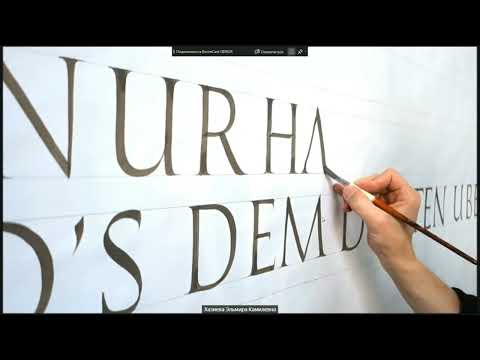 NURHA
O'S DEM D TEN UBE
Хазиева Эльмира Камилевна